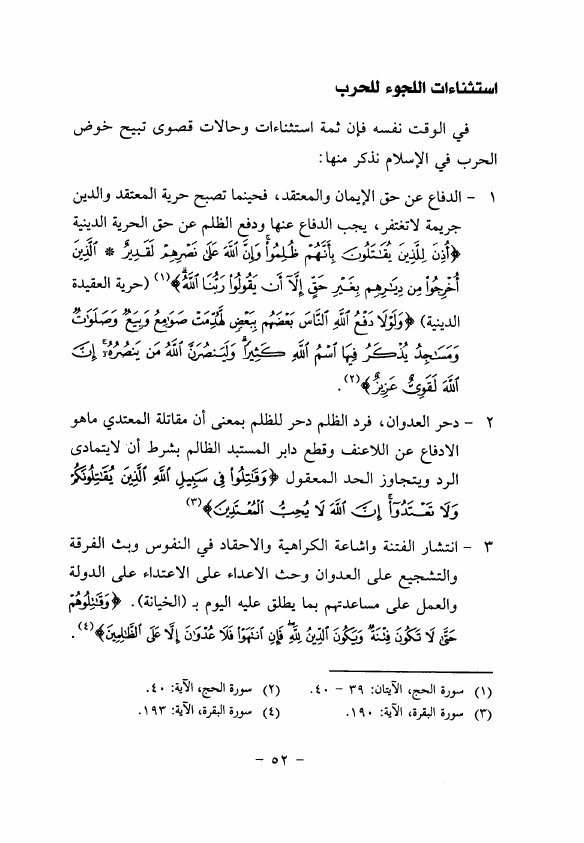 استثناءات اللجوء للحرب
في الوقت نفسه فإن ثمة استثناءات وحالات قصوى تبيح خوض
الحرب في الإسلام نذكر منها:
١ - الدفاع عن حق الإيمان والمعتقد، فحينما تصبح حرية المعتقد والدين
جريمة لاتغتفر، يجب الدفاع عنها ودفع الظلم عن حق الحرية الدينية
﴿أُذِنَ لِلَّذِينَ يُقَٰتَلُونَ بِأَنَّهُمْ ظُلِمُوا۟ وَإِنَّ ٱللَّهَ عَلَىٰ نَصْرِهِمْ لَقَدِيرٌ * ٱلَّذِينَ
أُخْرِجُوا۟ مِن دِيَٰرِهِم بِغَيْرِ حَقٍّ إِلَّآ أَن يَقُولُوا۟ رَبُّنَا ٱللَّهُ﴾(١) (حرية العقيدة
الدينية) ﴿وَلَوْلَا دَفْعُ ٱللَّهِ ٱلنَّاسَ بَعْضَهُم بِبَعْضٍ لَّهُدِّمَتْ صَوَٰمِعُ وَبِيَعٌ وَصَلَوَٰتٌ
وَمَسَٰجِدُ يُذْكَرُ فِيهَا ٱسْمُ ٱللَّهِ كَثِيرًا وَلَيَنصُرَنَّ ٱللَّهُ مَن يَنصُرُهُۥٓ إِنَّ
ٱللَّهَ لَقَوِىٌّ عَزِيزٌ﴾(٢).
٢ - دحر العدوان، فرد الظلم دحر للظلم بمعنى أن مقاتلة المعتدي ماهو
الادفاع عن اللاعنف وقطع دابر المستبد الظالم بشرط أن لايتمادى
الرد ويتجاوز الحد المعقول ﴿وَقَٰتِلُوا۟ فِى سَبِيلِ ٱللَّهِ ٱلَّذِينَ يُقَٰتِلُونَكُمْ
وَلَا تَعْتَدُوٓا۟ إِنَّ ٱللَّهَ لَا يُحِبُّ ٱلْمُعْتَدِينَ﴾(٣)
٣ - انتشار الفتنة واشاعة الكراهية والاحقاد في النفوس وبث الفرقة
والتشجيع على العدوان وحث الاعداء على الاعتداء على الدولة
والعمل على مساعدتهم بما يطلق عليه اليوم بـ (الخيانة). ﴿وَقَٰتِلُوهُمْ
حَتَّىٰ لَا تَكُونَ فِتْنَةٌ وَيَكُونَ ٱلدِّينُ لِلَّهِ فَإِنِ ٱنتَهَوْا۟ فَلَا عُدْوَٰنَ إِلَّا عَلَى ٱلظَّٰلِمِينَ﴾(٤).
(١) سورة الحج، الآيتان: ٣٩ - ٤٠. (٢) سورة الحج، الآية: ٤٠.
(٣) سورة البقرة، الآية: ١٩٠. (٤) سورة البقرة، الآية: ١٩٣.
- ٥٢ -